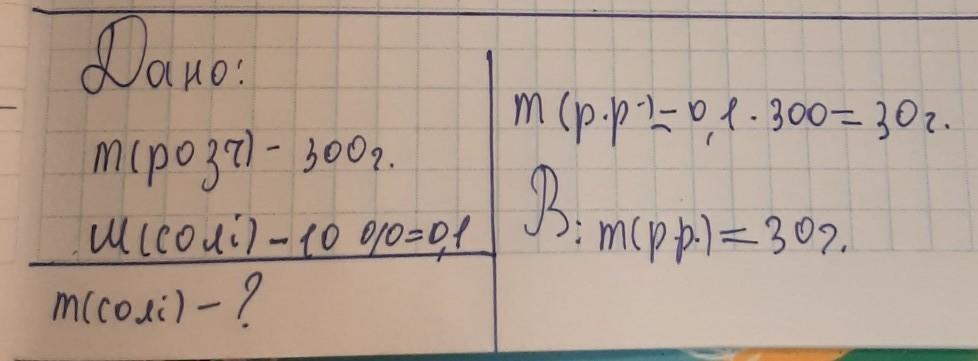 Дано:
m(розч) - 300г.
W(солі) - 10 % = 0,1
m(солі) - ?
m(р.р) = 0,1 · 300 = 30г.
В: m(р р.) = 30г.